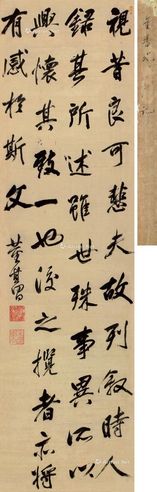 視昔良可悲夫故列叙時人
錄其所述雖世殊事異所以
興懷其致一也後之攬者亦將
有感於斯文
董其昌